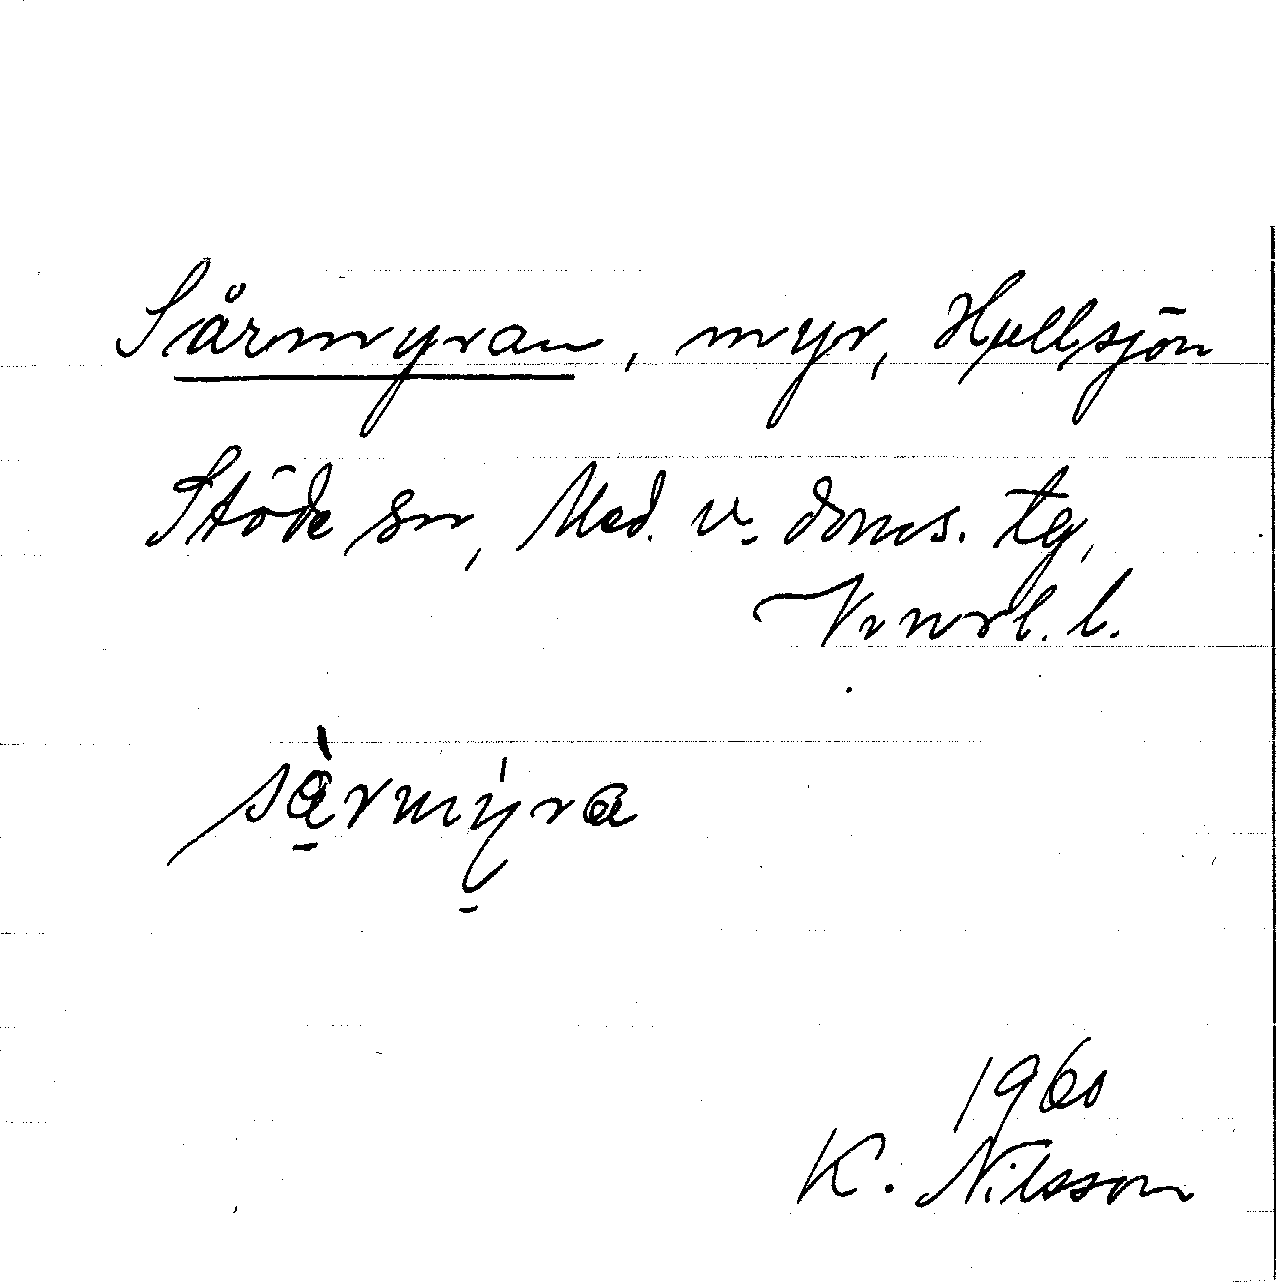 Sårmyran, myr, Hullsjön
Stöde sn, Med. v. doms. tg,
Vnorl. l.
sàrmýra
1960
K. Nilsson